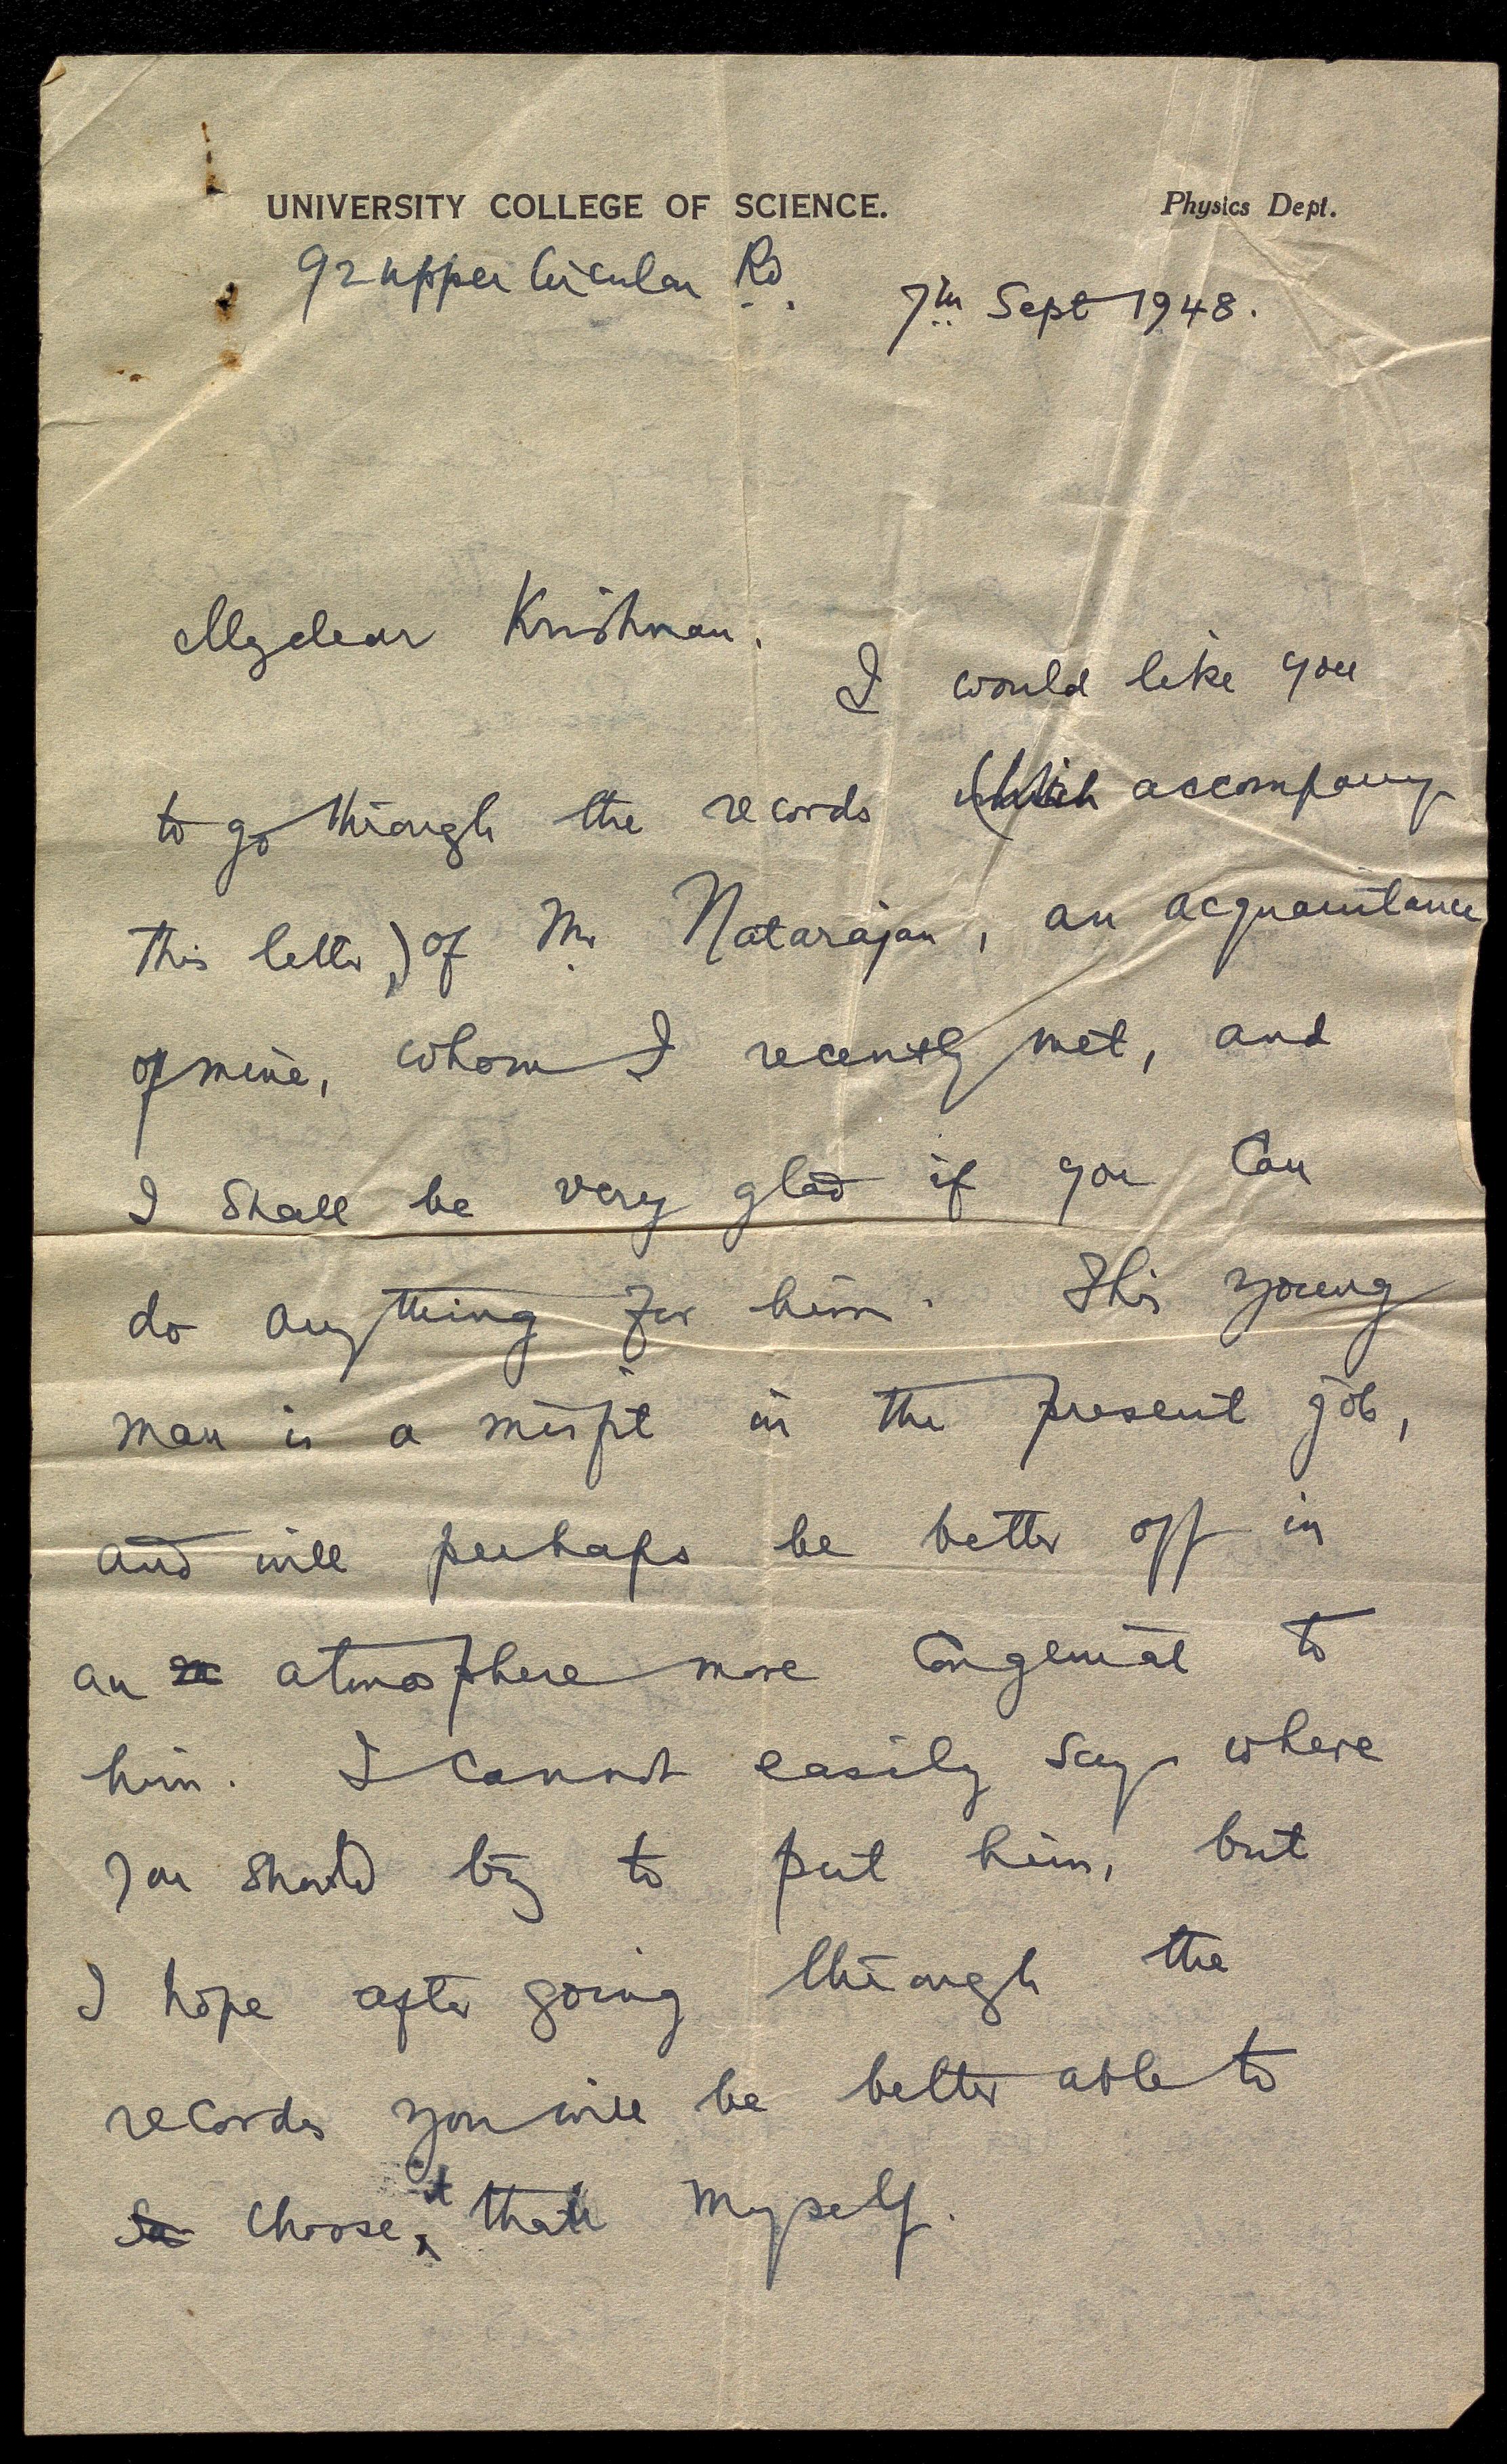 UNIVERSITY COLLEGE OF SCIENCE. Physics Dept.
92 Upper Circular Rd. 7th Sept 1948.
My dear Krishnan.
I would like you
to go through the records (which accompany
this letter,) of Mr Natarajan, an acquaintance
of mine, whom I recently met, and
I shall be very glad if you can
do anything for him. This young
man is a misfit in the present job,
and will perhaps be better off in
an atmosphere more congenial to
him. I cannot easily say where
you should try to put him, but
I hope after going through the
records you will be better able to
choose it than myself.